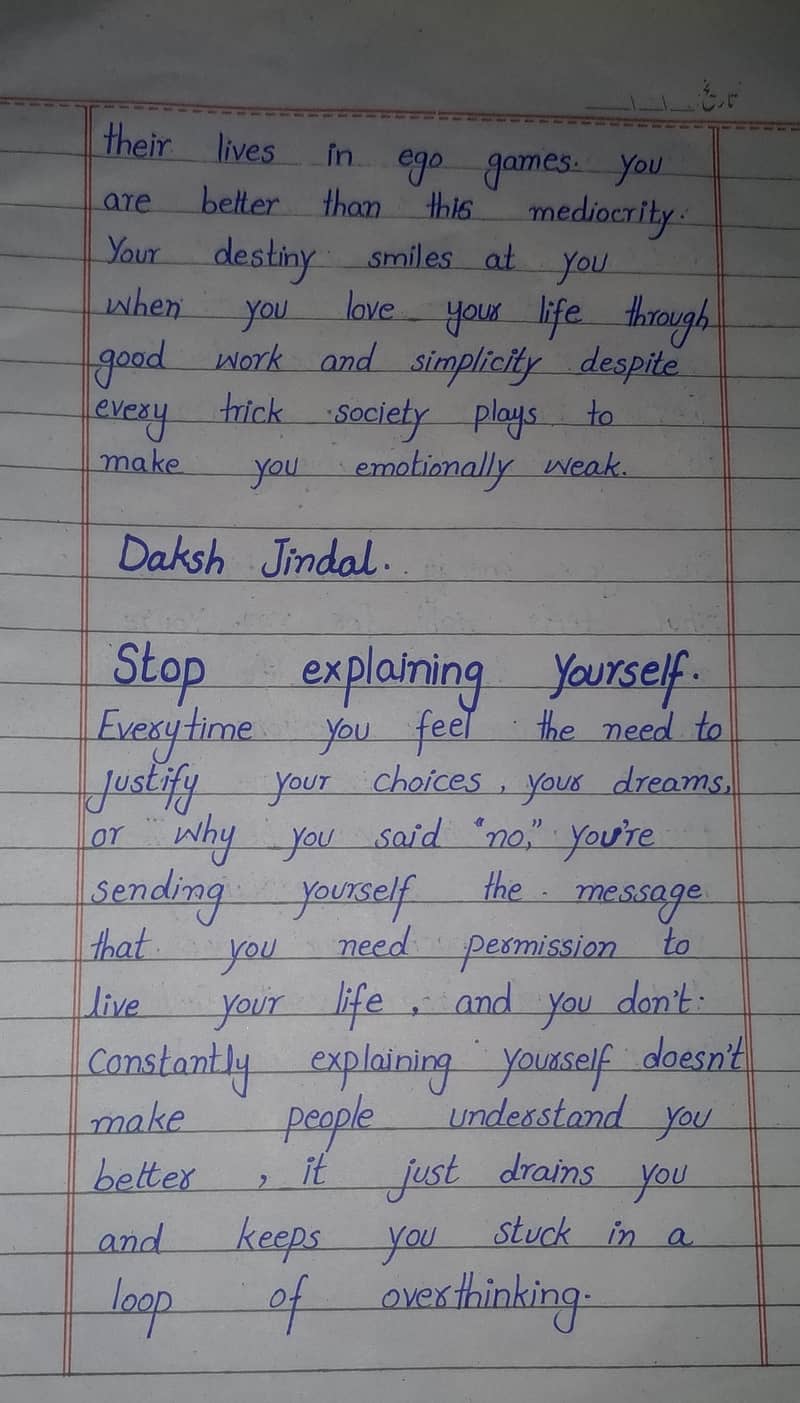 تاریخ ___\___\___
their lives in ego games. you
are better than this mediocrity.
Your destiny smiles at you
when you love your life through
good work and simplicity despite
every trick society plays to
make you emotionally weak.
Daksh Jindal.
Stop explaining yourself.
Everytime you feel the need to
justify your choices, your dreams,
or why you said "no," you're
sending yourself the message
that you need permission to
live your life, and you don't.
Constantly explaining yourself doesn't
make people understand you
better, it just drains you
and keeps you stuck in a
loop of overthinking.